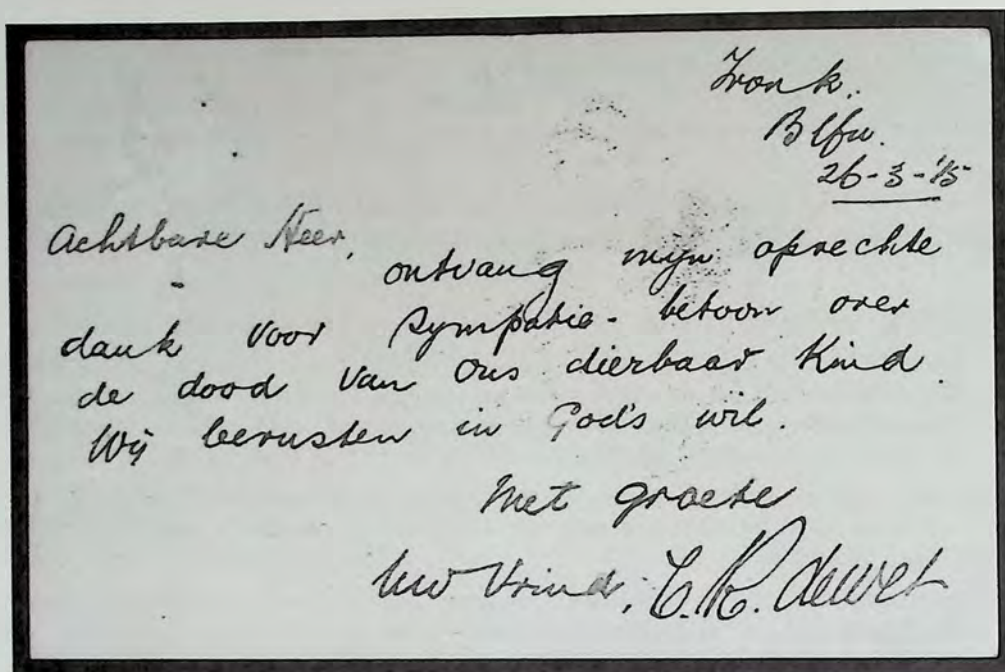 Tronk.
Blfn.
26-3-'15
Achtbare Heer,
ontvang mijn oprechte
dank voor sympatie-betoon over
de dood van ons dierbaar Kind.
Wij berusten in God's wil.
Met groete
Uw Vriend, C. R. de Wet